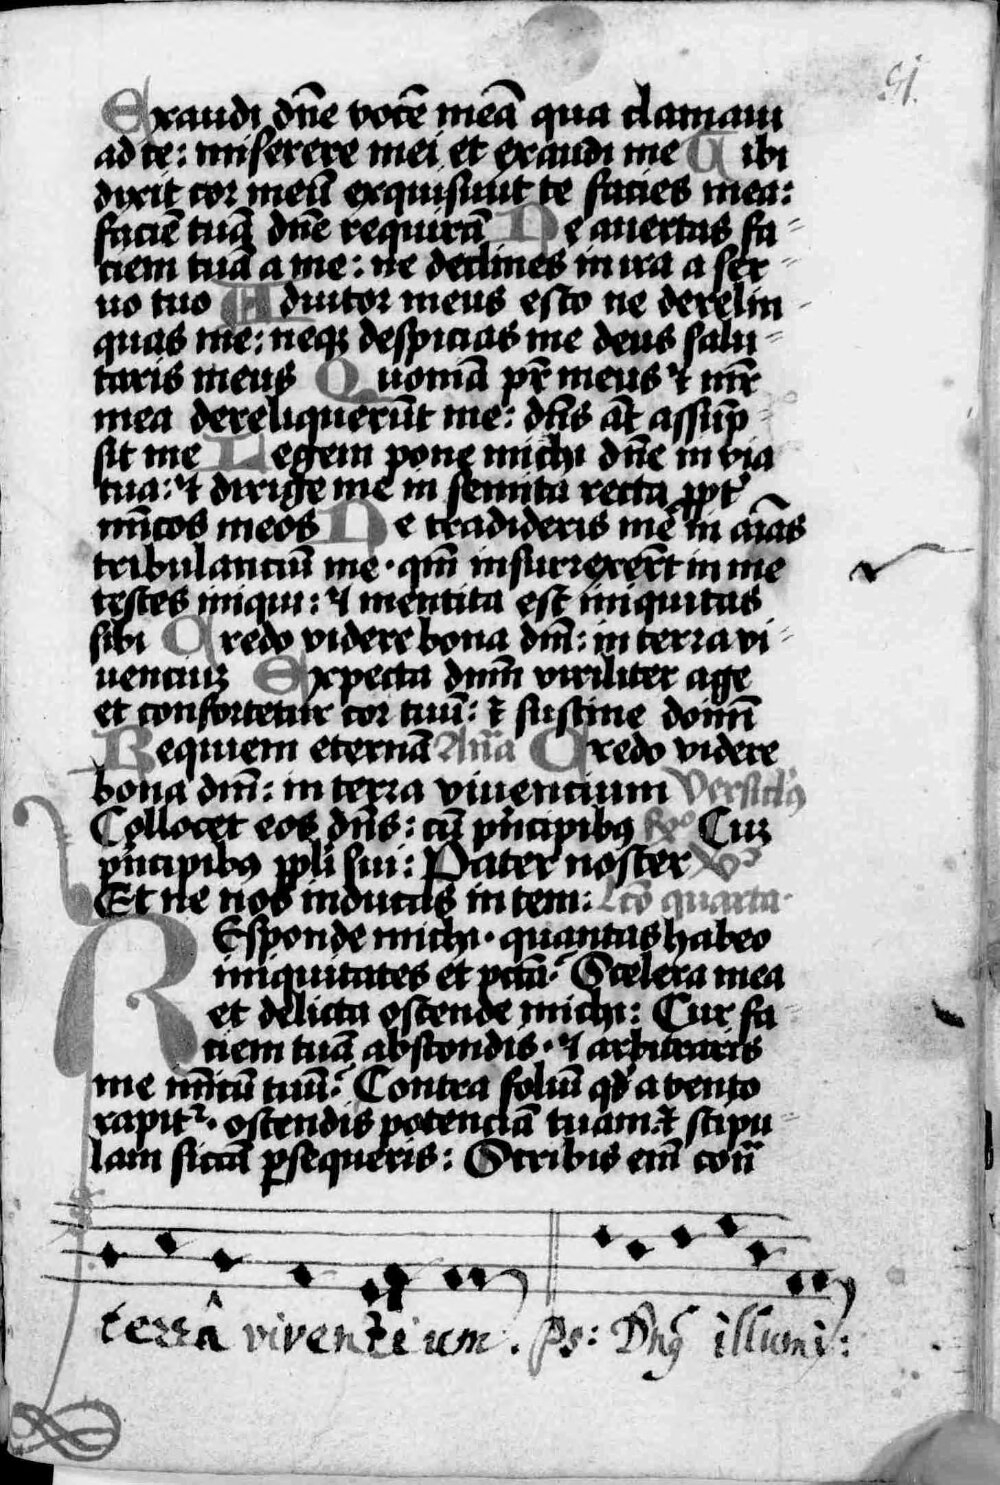 91.
Exaudi dn̄e vocē meā qua clamaui
ad te: miserere mei et exaudi me Tibi
dixit cor meū exquisiuit te facies mea:
faciē tuā dn̄e requirā Ne auertas fa-
ciem tuā a me: ne declines in ira a ser-
uo tuo Adiutor meus esto ne derelin-
quas me: neqꝫ despicias me deus salu-
taris meus Quoniā pr̄ meus ⁊ mr̄
mea dereliquerūt me: dn̄s āt assūp-
sit me Legem pone michi dn̄e in via
tua: ⁊ dirige me in semita recta ꝓpt᷑
inīcos meos Ne tradideris me in aīas
tribulanciū me · qm̄ insurrexer̄t in me
testes iniqui: ⁊ mentita est iniquitas
sibi Credo videre bona dnī: in terra vi-
uenciuꝫ Expecta dnm̄ viriliter age
et confortetur cor tuū: ⁊ sustine dominū
Requiem eternā Aña Credo videre
bona dnī: in terra viuencium Versiclꝰ
Collocet eos dn̄s: cū pⁱncipibꝰ Rꝭo Cuꝫ
pⁱncipibꝰ ppl̄i sui: Pater noster Vꝰ
Et ne nos inducas in tem: Lcō quarta·
Responde michi · quantas habeo
iniquitates et pctā? Scelera mea
et delicta ostende michi: Cur fa-
ciem tuā abscondis · ⁊ arbitraris
me inīcū tuū? Contra foliū qd̄ a vento
rapit᷑ · ostendis potenciā tuam: ⁊ stipu-
lam siccā ꝑsequeris: Scribis em̄ con̄
terrâ viventium. Ps: Dnꝰ illumi: